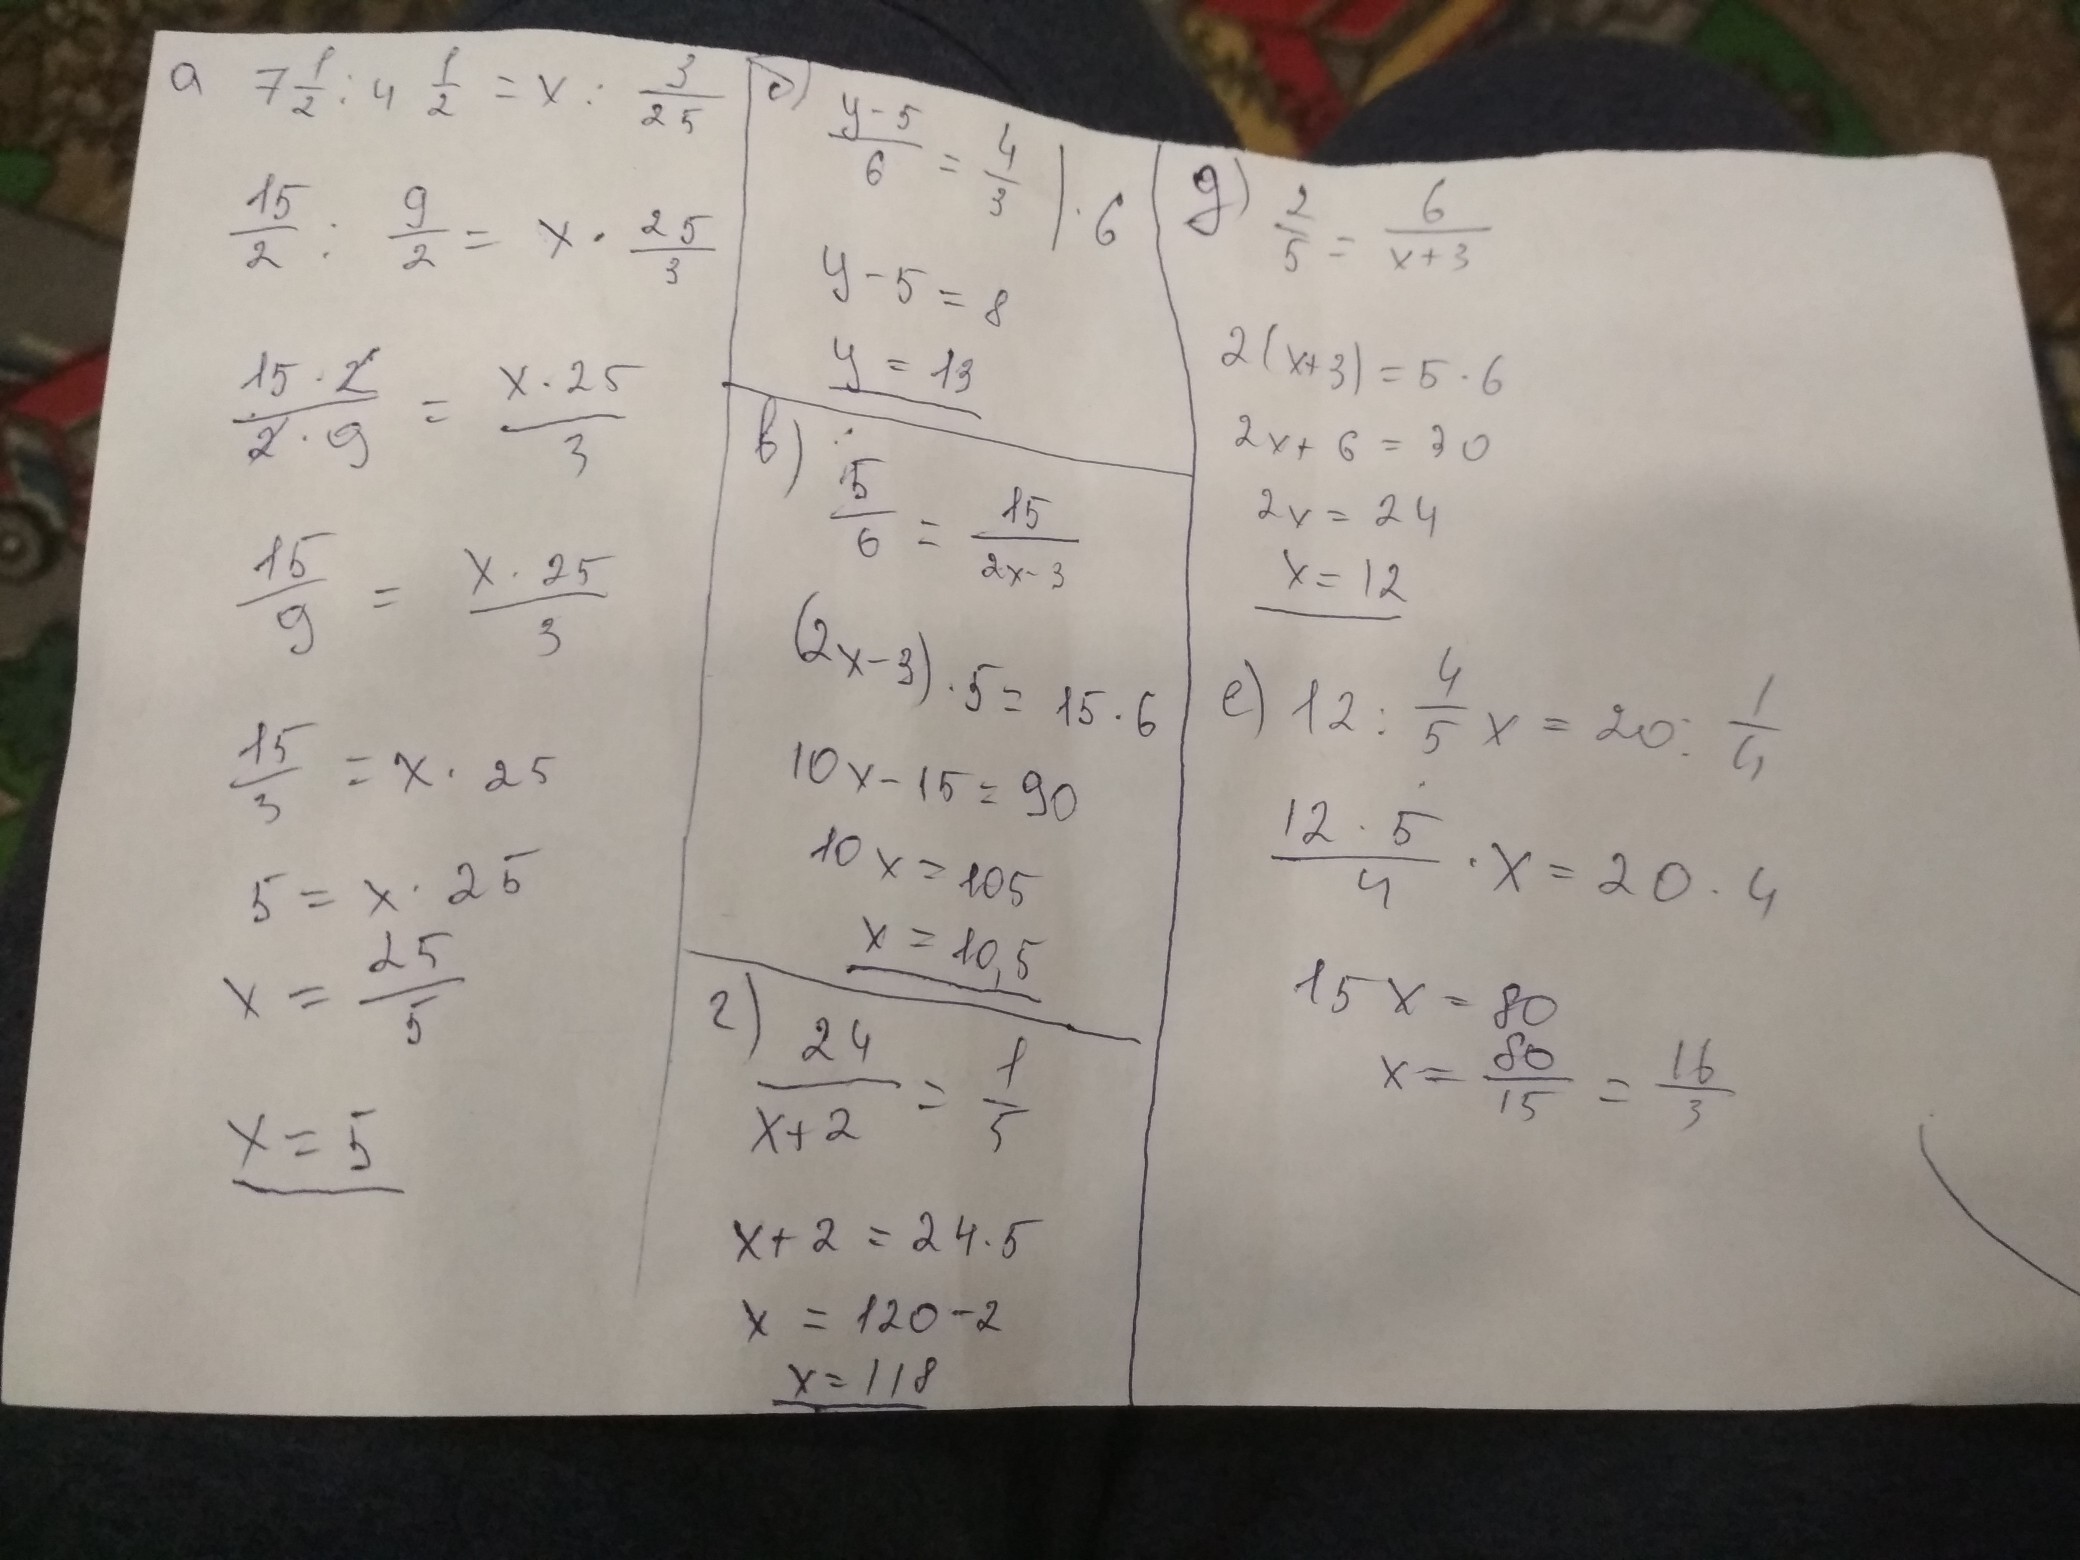 а 7 1/2 : 4 1/2 = x : 3/25
15/2 : 9/2 = x · 25/3
15·2/2·9 = x·25/3
15/9 = x·25/3
15/3 = x·25
5 = x·25
x = 25/5
x = 5
б) y-5/6 = 4/3 |·6
y-5 = 8
y = 13
в) 5/6 = 15/2x-3
(2x-3)·5 = 15·6
10x-15 = 90
10x = 105
x = 10,5
г) 24/x+2 = 1/5
x+2 = 24·5
x = 120-2
x = 118
д) 2/5 = 6/x+3
2(x+3) = 5·6
2x+6 = 30
2x = 24
x = 12
е) 12 : 4/5 x = 20 : 1/4
12·5/4 · x = 20·4
15x = 80
x = 80/15 = 16/3